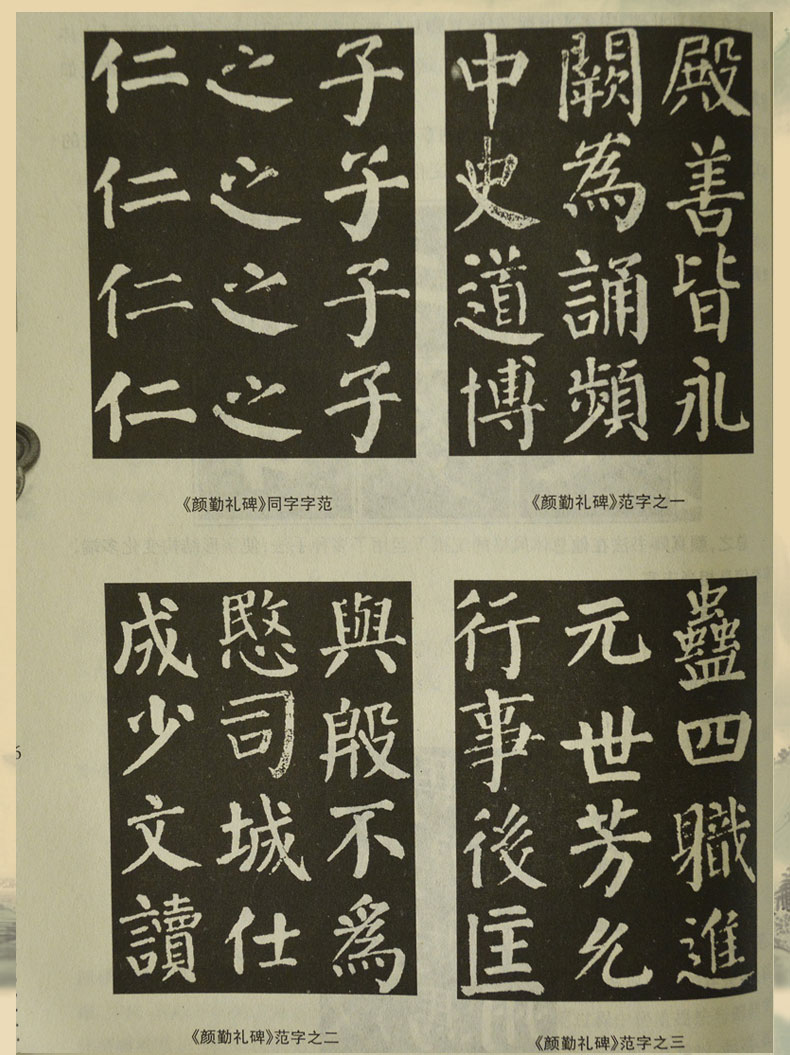 殿善皆永
闕為誦頻
中史道博
《颜勤礼碑》范字之一
子子子子
之之之之
仁仁仁仁
《颜勤礼碑》同字字范
與殷不爲
愍司城仕
成少文讀
《颜勤礼碑》范字之二
蠱四職進
元世芳允
行事後匡
《颜勤礼碑》范字之三
6